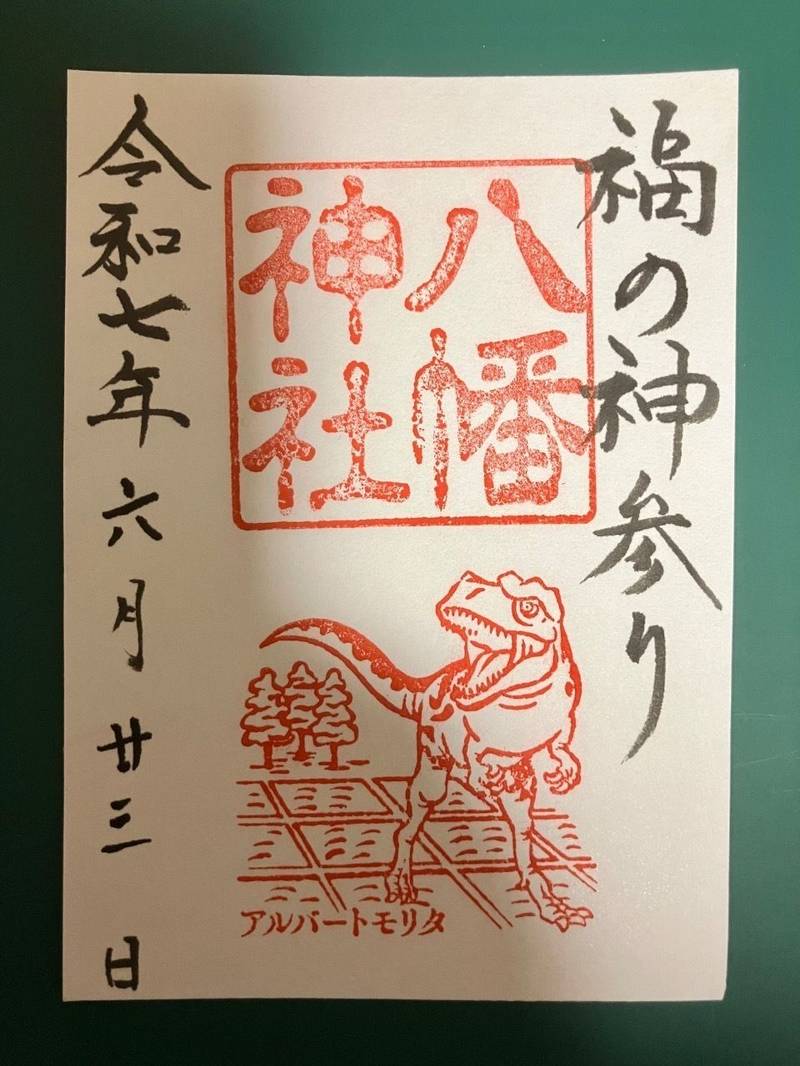 福の神参り
八幡
神社
アルバートモリタ
令和七年六月廿三日